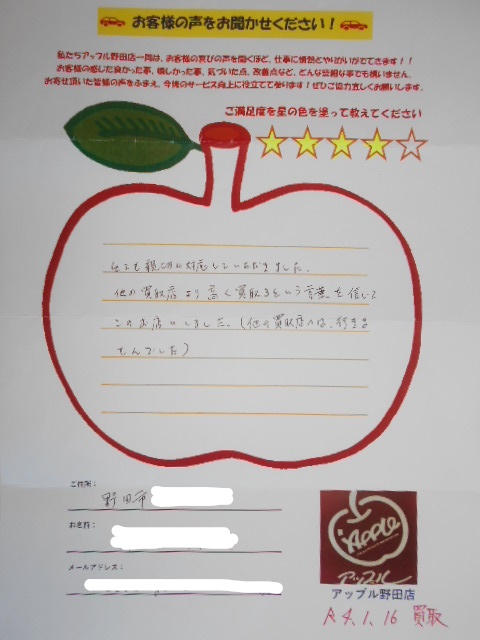 お客様の声をお聞かせください！
私たちアップル野田店一同は、お客様の喜びの声を聞くほど、仕事に情熱とやりがいがでてきます！！
お客様の感じた良かった事、嬉しかった事、気づいた点、改善点など、どんな些細な事でも構いません。
お寄せ頂いた皆様の声をふまえ、今後のサービス向上に役立てて参ります！ぜひご協力宜しくお願いします。
ご満足度を星の色を塗って教えてください
とても親切に対応していただきました。
他の買取店より高く買取るという言葉を信じて
このお店にしました。(他の買取店へは、行きま
せんでした)
ご住所：
野田市
お名前：
メールアドレス：
APPLE
アップル
アップル野田店
R.4.1.16 買取